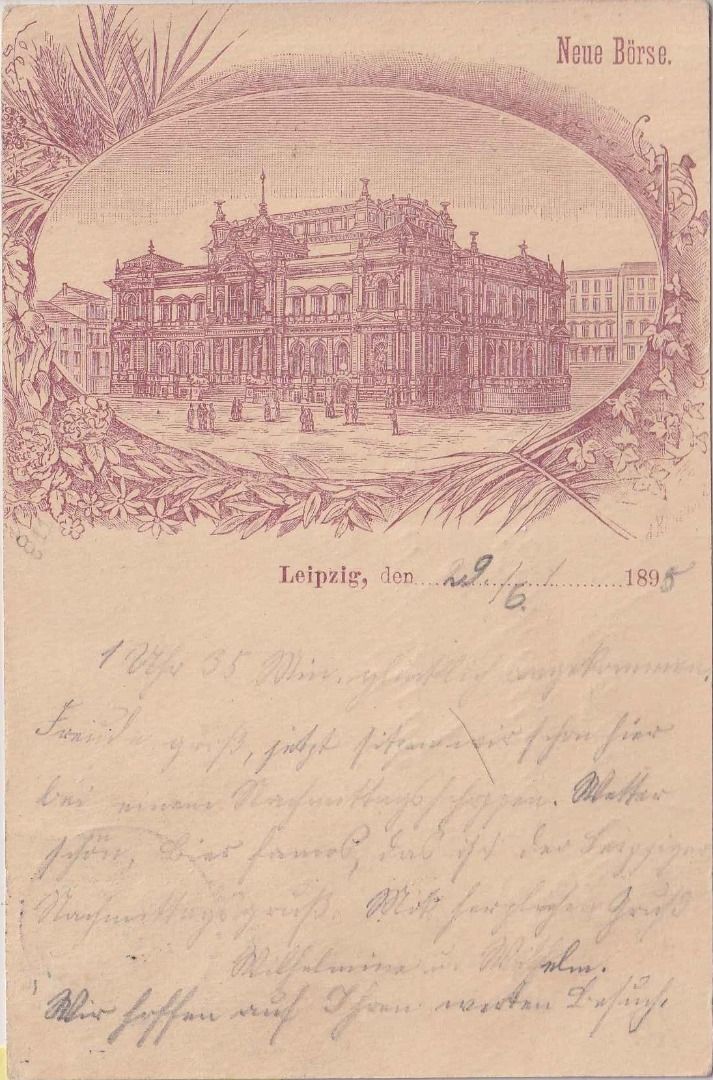 Neue Börse.
Leipzig, den 29./6. 1895
1 Uhr 35 Min. glücklich angekommen.
Freude groß, jetzt sitzen wir schon hier
bei einem Nachmittagsschoppen. Wetter
schön, Bier famos, das ist der Leipziger
Nachmittagsgruß. Mit herzlichem Gruß
Wilhelmine u. Wilhelm.
Wir hoffen auf Ihren werten Besuch.